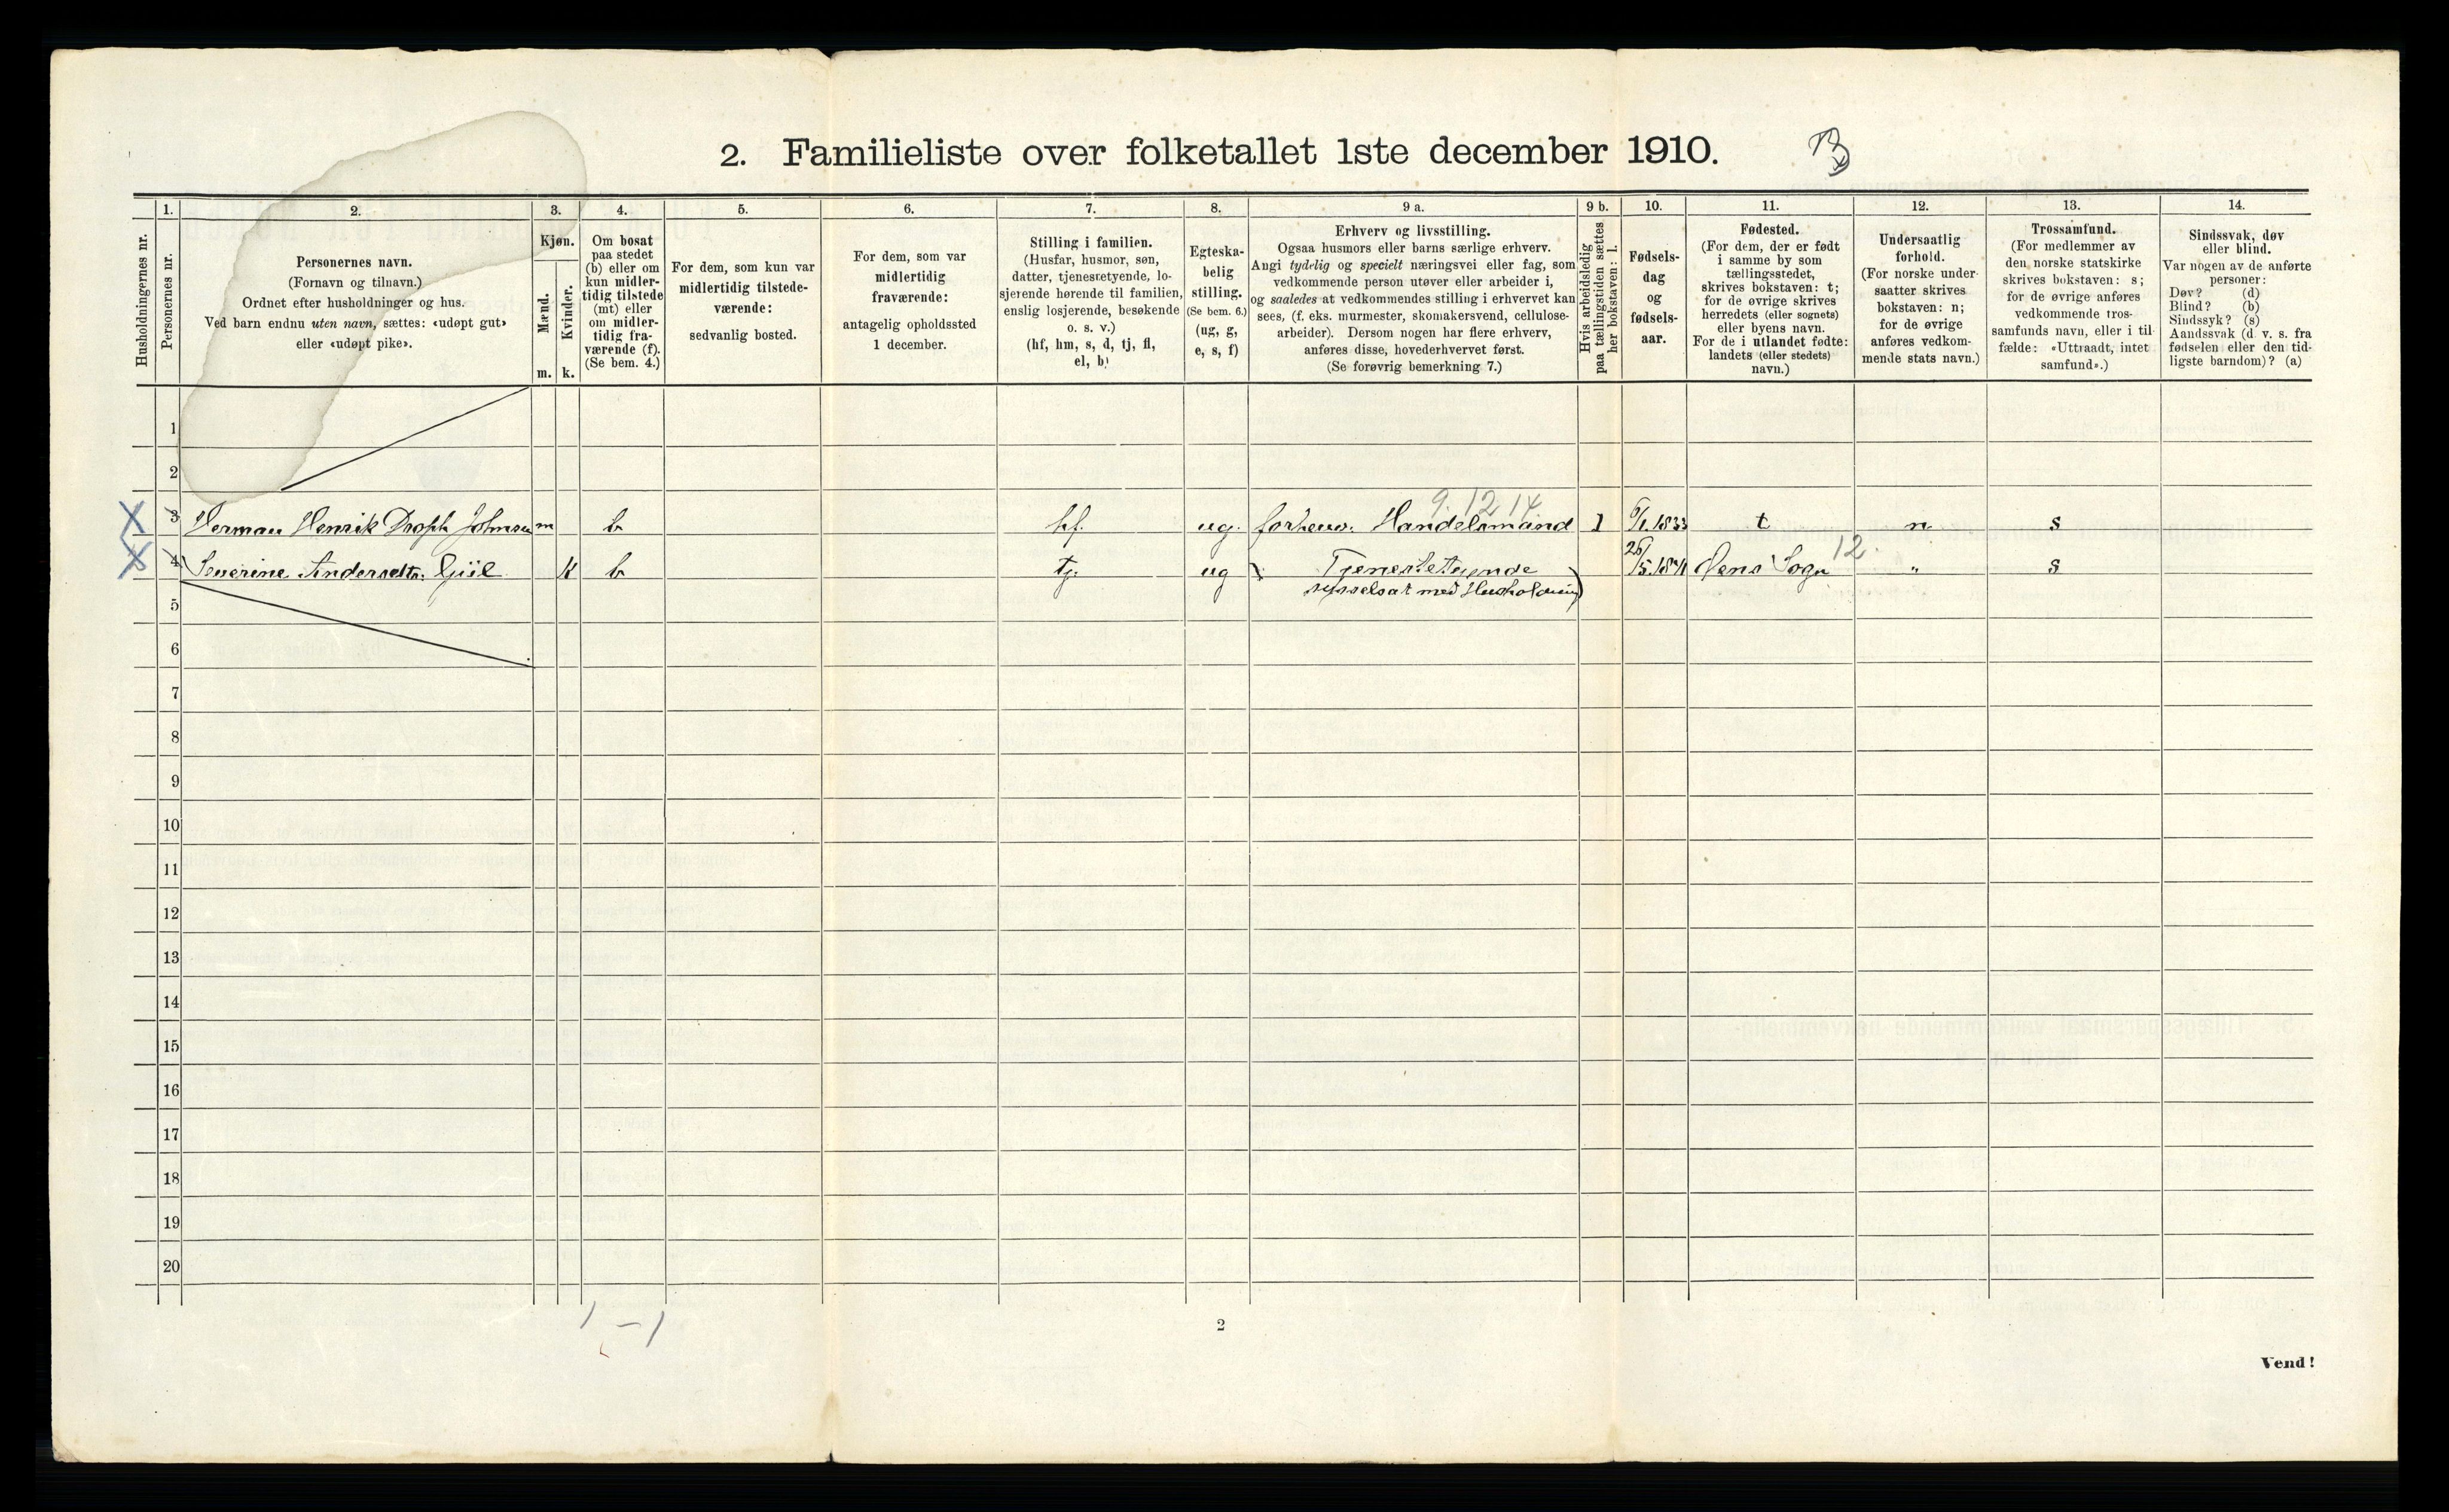 2. Familieliste over folketallet 1ste december 1910.
B
Husholdningernes nr.
1.
Personernes nr.
2.
Personernes navn.
(Fornavn og tilnavn.)
Ordnet efter husholdninger og hus.
Ved barn endnu uten navn, sættes: «udøpt gut»
eller «udøpt pike».
3.
Kjøn.
Mænd.
Kvinder.
m. k.
4.
Om bosat
paa stedet
(b) eller om
kun midler-
tidig tilstede
(mt) eller
om midler-
tidig fra-
værende (f).
(Se bem. 4.)
5.
For dem, som kun var
midlertidig tilstede-
værende:
sedvanlig bosted.
6.
For dem, som var
midlertidig
fraværende:
antagelig opholdssted
1 december.
7.
Stilling i familien.
(Husfar, husmor, søn,
datter, tjenestetyende, lo-
sjerende hørende til familien,
enslig losjerende, besøkende
o. s. v.)
(hf, hm, s, d, tj, fl,
el, b)
8.
Egteska-
belig
stilling.
(Se bem. 6.)
(ug, g,
e, s, f)
9 a.
Erhverv og livsstilling.
Ogsaa husmors eller barns særlige erhverv.
Angi tydelig og specielt næringsvei eller fag, som
vedkommende person utøver eller arbeider i,
og saaledes at vedkommendes stilling i erhvervet kan
sees, (f. eks. murmester, skomakersvend, cellulose-
arbeider). Dersom nogen har flere erhverv,
anføres disse, hovederhvervet først.
(Se forøvrig bemerkning 7.)
9 b.
Hvis arbeidsledig
paa tællingstiden sættes
her bokstaven: l.
10.
Fødsels-
dag
og
fødsels-
aar.
11.
Fødested.
(For dem, der er født
i samme by som
tællingsstedet,
skrives bokstaven: t;
for de øvrige skrives
herredets (eller sognets)
eller byens navn.
For de i utlandet fødte:
landets (eller stedets)
navn.)
12.
Undersaatlig
forhold.
(For norske under-
saatter skrives
bokstaven: n;
for de øvrige
anføres vedkom-
mende stats navn.)
13.
Trossamfund.
(For medlemmer av
den norske statskirke
skrives bokstaven: s;
for de øvrige anføres
vedkommende tros-
samfunds navn, eller i til-
fælde: «Uttraadt, intet
samfund».)
14.
Sindssvak, døv
eller blind.
Var nogen av de anførte
personer:
Døv? (d)
Blind? (b)
Sindssyk? (s)
Aandssvak (d. v. s. fra
fødselen eller den tid-
ligste barndom)? (a)
1
2
9. 12 14
X 3 Herman Henrik Droph Johnsen m b hf. ug. forhenv. Handelsmand l 6/1.1833 t n s
12.
X 4 Severine Andersdtr. Giil k b tj. ug Tjenestetyende 26/5.1871 Sogn " s
sysselsat med Husholdning)
5
6
7
8
9
10
11
12
13
14
15
16
17
18
19
20
1 – 1
2
Vend!